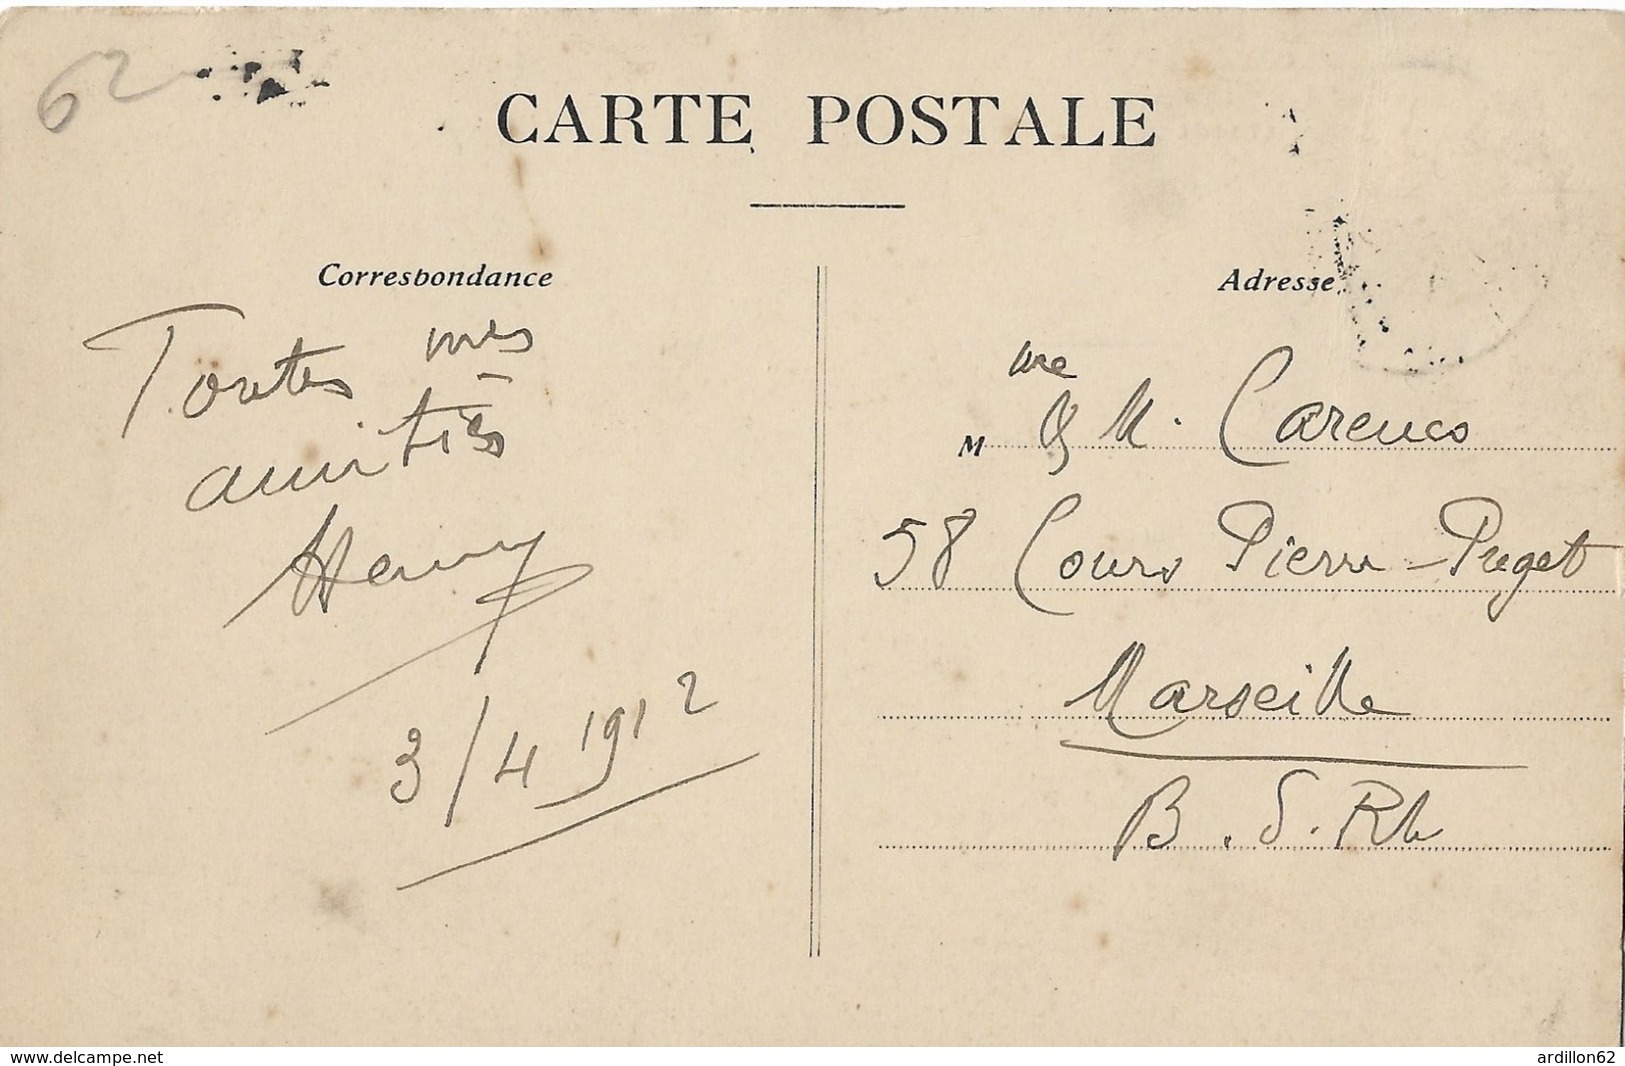 62
CARTE POSTALE
Correspondance
Toutes mes
amitiés
Henry
3/4 1912
Adresse
M me & M. Carenco
58 Cours Pierre-Puget
Marseille
B. d. Rh
www.delcampe.net
ardillon62